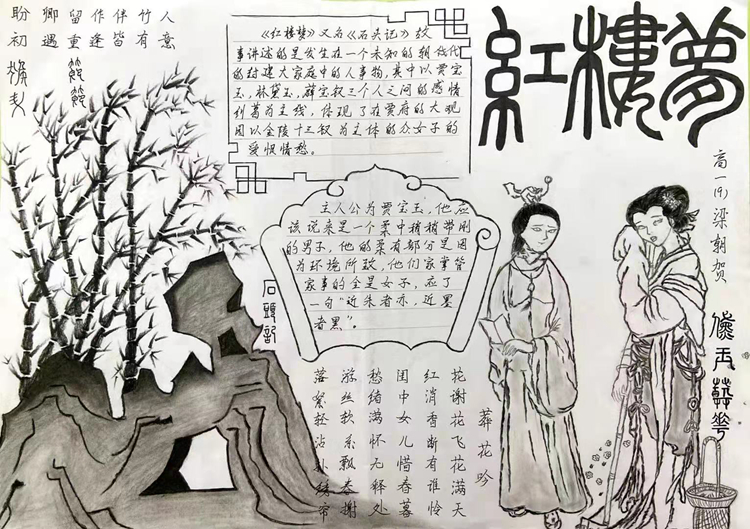 紅樓夢
高一(9) 梁朝贺
盼卿留作伴竹人
初遇重逢皆有意
《红楼梦》又名《石头记》故
事讲述的是发生在一个未知的朝代
的封建大家庭中的人事物，其中以贾宝
玉，林黛玉，薛宝钗三个人之间的感情
纠葛为主线，体现了在贾府的大观
园以金陵十二钗为主体的众女子的
爱恨情愁。
主人公为贾宝玉，他应
该说来是一个柔中稍稍带刚
的男子，他的柔有部分是因
为环境所致，他们家掌管
家事的全是女子，应了
一句“近朱者亦，近墨
者黑”。
石頭記
葬花吟
花谢花飞花满天
红消香断有谁怜
闺中女儿惜春暮
愁绪满怀无释处
游丝软系飘春榭
落絮轻沾扑绣帘
玉葬花